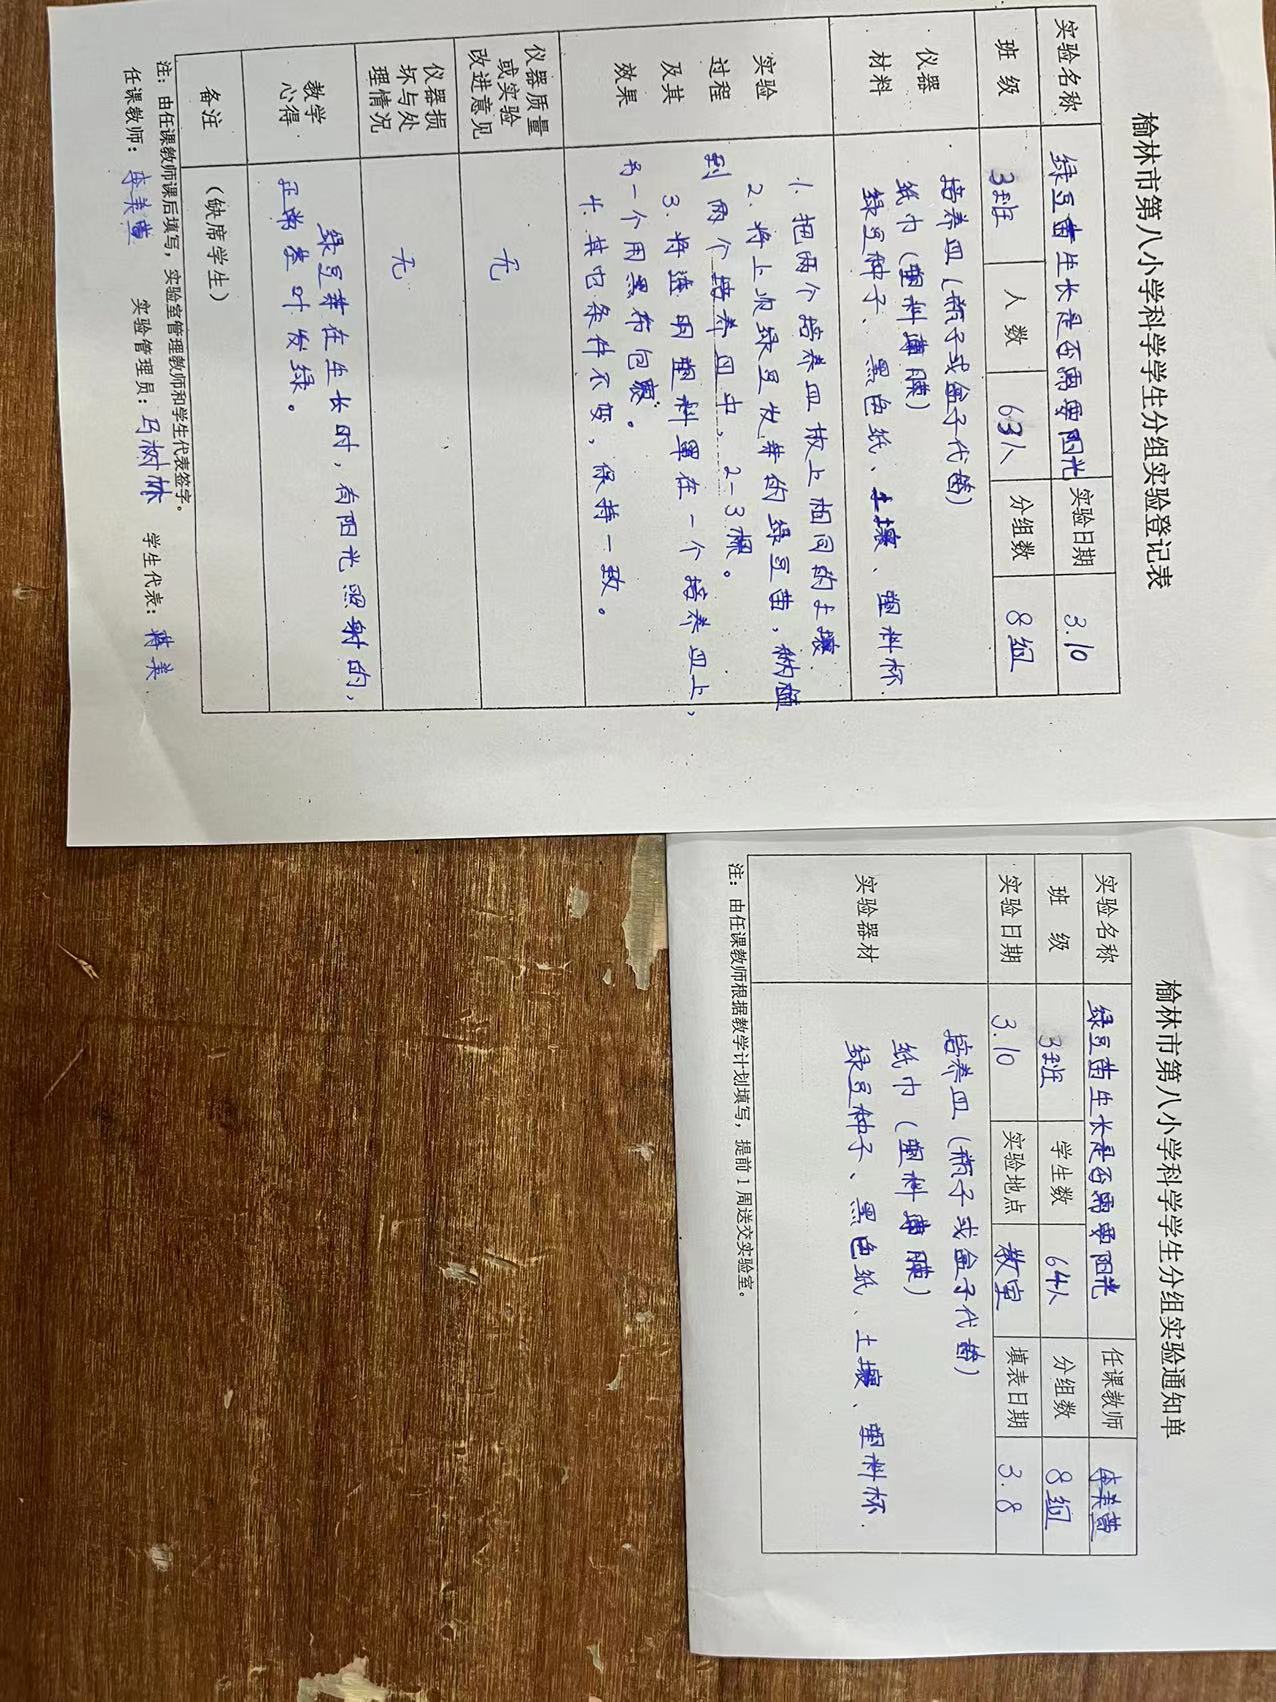 榆林市第八小学科学学生分组实验登记表
实验名称 绿豆苗生长是否需要阳光 实验日期 3.10
班 级 3班 人 数 63人 分组数 8组
仪器
材料
培养皿(瓶子或盒子代替)
纸巾(塑料薄膜)
绿豆种子、黑色纸、土壤、塑料杯
实验
过程
及其
效果
1. 把两个培养皿放上相同的土壤
2. 将上次绿豆发芽的绿豆苗,
到两个培养皿中, 2-3棵。
3. 将透明塑料罩在一个培养皿上,
另一个用黑布包裹。
4. 其它条件不变,保持一致。
仪器质量
或实验
改进意见
无
仪器损
坏与处
理情况
无
教学
心得
绿豆芽在生长时,有阳光照射的,
正常茎叶发绿。
备注 (缺席学生)
注:由任课教师课后填写,实验室管理教师和学生代表签字。
任课教师: 实验管理员:马树林 学生代表:蒋美
榆林市第八小学科学学生分组实验通知单
实验名称 绿豆苗生长是否需要阳光 任课教师
班 级 3班 学生数 64人 分组数 8组
实验日期 3.10 实验地点 教室 填表日期 3.8
实验器材
培养皿(瓶子或盒子代替)
纸巾(塑料薄膜)
绿豆种子、黑色纸、土壤、塑料杯
注:由任课教师根据教学计划填写,提前1周送交实验室。